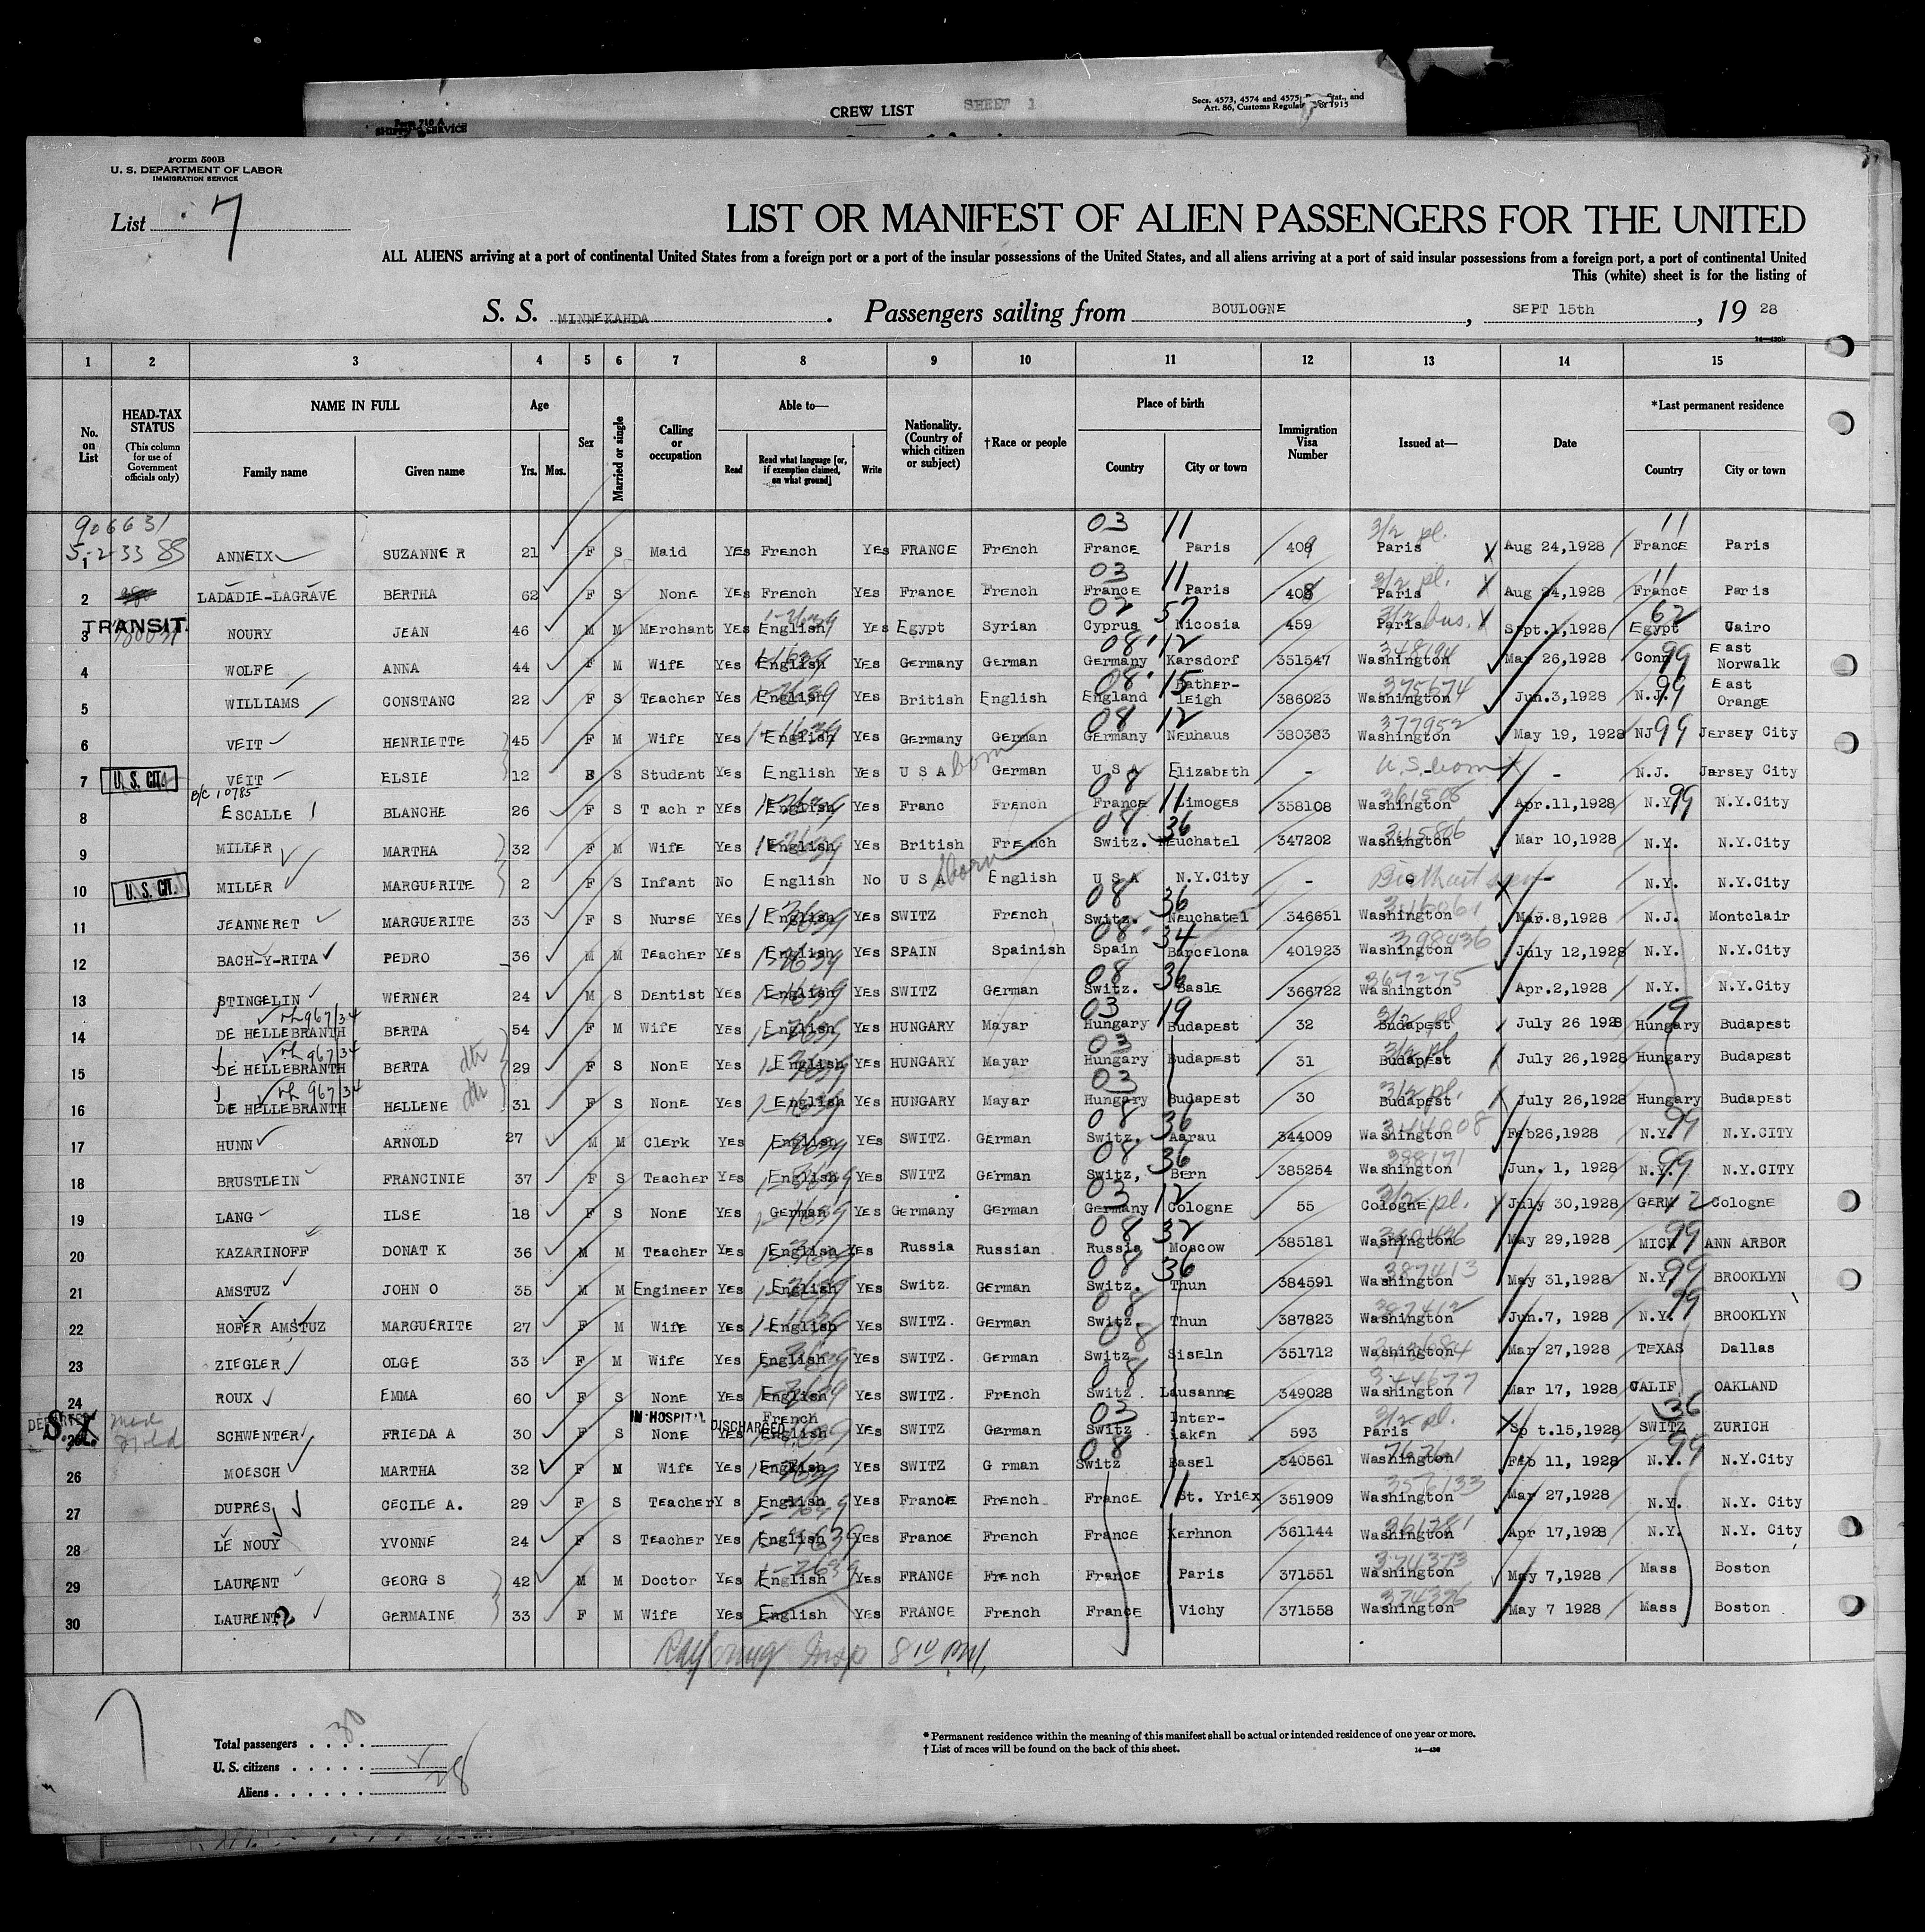 CREW LIST SHEET 1
Secs. 4573, 4574 and 4575, Stat., and
Art. 86, Customs 1915
Form 710 A
SHIPPING SERVICE
Form 500B
U. S. DEPARTMENT OF LABOR
IMMIGRATION SERVICE
List 7
LIST OR MANIFEST OF ALIEN PASSENGERS FOR THE UNITED
ALL ALIENS arriving at a port of continental United States from a foreign port or a port of the insular possessions of the United States, and all aliens arriving at a port of said insular possessions from a foreign port, a port of continental United
This (white) sheet is for the listing of
S. S. MINNEKAHDA. Passengers sailing from BOULOGNE, SEPT 15th, 1928
1 2 3 4 5 6 7 8 9 10 11 12 13 14 15
No. on List
HEAD-TAX STATUS (This column for use of Government officials only)
NAME IN FULL Family name Given name
Age Yrs. Mos.
Sex
Married or single
Calling or occupation
Able to— Read Read what language [or, if exemption claimed, on what ground] Write
Nationality. (Country of which citizen or subject)
†Race or people
Place of birth Country City or town
Immigration Visa Number
Issued at—
Date
*Last permanent residence Country City or town
906631
5-2-33
03 11 3/2 pl. 11
1 ANNEIX SUZANNE R 21 F S Maid Yes French Yes FRANCE French France Paris 409 Paris Aug 24,1928 France Paris
03 11 3/2 pl. 11
2 LADADIE-LAGRAVE BERTHA 62 F S None Yes French Yes France French France Paris 408 Paris Aug 24,1928 France Paris
TRANSIT. 02 57 3/2 bus. 62
3 NOURY JEAN 46 M M Merchant Yes English Yes Egypt Syrian Cyprus Nicosia 459 Paris Sept.1,1928 Egypt Cairo
08 12 348194 99
4 WOLFE ANNA 44 F M Wife Yes English Yes Germany German Germany Karsdorf 351547 Washington Mar 26,1928 Conn East Norwalk
08 15 375674 99
5 WILLIAMS CONSTANC 22 F S Teacher Yes English Yes British English England Hather-leigh 386023 Washington Jun.3,1928 N.J. East Orange
08 12 377952 99
6 VEIT HENRIETTE 45 F M Wife Yes English Yes Germany German Germany Neuhaus 380383 Washington May 19, 1928 NJ Jersey City
U. S. CIT. born U.S. born
7 VEIT ELSIE 12 F S Student Yes English Yes U S A German U S A Elizabeth - - - N.J. Jersey City
B/C 10785 08 11 361508 99
8 ESCALLE BLANCHE 26 F S T ach r Yes English Yes Franc French France Limoges 358108 Washington Apr.11,1928 N.Y. N.Y.City
08 36
9 MILLER MARTHA 32 F M Wife Yes English Yes British French Switz. Neuchatel 347202 Washington Mar 10,1928 N.Y. N.Y.City
U. S. CIT. born
10 MILLER MARGUERITE 2 F S Infant No English No U S A English U S A N.Y.City - - - N.Y. N.Y.City
08 36
11 JEANNERET MARGUERITE 33 F S Nurse Yes English Yes SWITZ French Switz. Neuchatel 346651 Washington Mar.8,1928 N.J. Montclair
08 34 398436
12 BACH-Y-RITA PEDRO 36 M M Teacher Yes English Yes SPAIN Spainish Spain Barcelona 401923 Washington July 12,1928 N.Y. N.Y.City
08 36 367275
13 STINGELIN WERNER 24 M S Dentist Yes English Yes SWITZ German Switz. Basle 366722 Washington Apr.2,1928 N.Y. N.Y.City
967/34 03 19 3/2 pl 19
14 DE HELLEBRANTH BERTA 54 F M Wife Yes English Yes HUNGARY Mayar Hungary Budapest 32 Budapest July 26 1928 Hungary Budapest
967/34 dtr 03 3/2 pl
15 DE HELLEBRANTH BERTA 29 F S None Yes English Yes HUNGARY Mayar Hungary Budapest 31 Budapest July 26,1928 Hungary Budapest
967/34 dtr 03 3/2 pl.
16 DE HELLEBRANTH HELLENE 31 F S None Yes English Yes HUNGARY Mayar Hungary Budapest 30 Budapest July 26,1928 Hungary Budapest
08 36 99
17 HUNN ARNOLD 27 M M Clerk Yes English Yes SWITZ. German Switz. Aarau 344009 Washington Feb26,1928 N.Y. N.Y.CITY
08 36 388171 99
18 BRUSTLEIN FRANCINIE 37 F S Teacher Yes English Yes SWITZ German Switz, Bern 385254 Washington Jun. 1, 1928 N.Y. N.Y.CITY
03 12 3/2 pl. 12
19 LANG ILSE 18 F S None Yes German Yes Germany German Germany Cologne 55 Cologne July 30,1928 GERM Cologne
08 32 99
20 KAZARINOFF DONAT K 36 M M Teacher Yes English Yes Russia Russian Russia Moscow 385181 Washington May 29,1928 MICH ANN ARBOR
08 36 387413 99
21 AMSTUZ JOHN O 35 M M Engineer Yes English Yes Switz. German Switz. Thun 384591 Washington May 31,1928 N.Y. BROOKLYN
08 387412 99
22 HOFER AMSTUZ MARGUERITE 27 F M Wife Yes English Yes SWITZ. German Switz. Thun 387823 Washington Jun.7, 1928 N.Y. BROOKLYN
08
23 ZIEGLER OLGE 33 F M Wife Yes English Yes SWITZ. German Switz Siseln 351712 Washington Mar 27,1928 TEXAS Dallas
08 344677
24 ROUX EMMA 60 F S None Yes English Yes SWITZ. French Switz. Lausanne 349028 Washington Mar 17, 1928 CALIF OAKLAND
IN HOSPITAL DISCHARGED French 03 3/2 pl. 36
SCHWENTER FRIEDA A 30 F S None Yes English Yes SWITZ German Switz Inter-laken 593 Paris Sp t.15,1928 SWITZ ZURICH
08 99
26 MOESCH MARTHA 32 F M Wife Yes English Yes SWITZ G rman Switz Basel 340561 Washington Feb 11, 1928 N.Y. N.Y.City
11 356133
27 DUPRES CECILE A. 29 F S Teacher Y s English Yes France French France St. Yriex 351909 Washington Mar 27,1928 N.Y. N.Y. City
361281
28 LE NOUY YVONNE 24 F S Teacher Yes English Yes France French France Kerhnon 361144 Washington Apr 17,1928 N.Y. N.Y. City
374373
29 LAURENT GEORG S 42 M M Doctor Yes English Yes FRANCE French France Paris 371551 Washington May 7,1928 Mass Boston
374376
30 LAURENT GERMAINE 33 F M Wife Yes English Yes FRANCE French France Vichy 371558 Washington May 7 1928 Mass Boston
Insp 8 10 PM.
Total passengers . . . . 30
U. S. citizens . . . . .
Aliens . . . . . . 28
* Permanent residence within the meaning of this manifest shall be actual or intended residence of one year or more.
† List of races will be found on the back of this sheet.